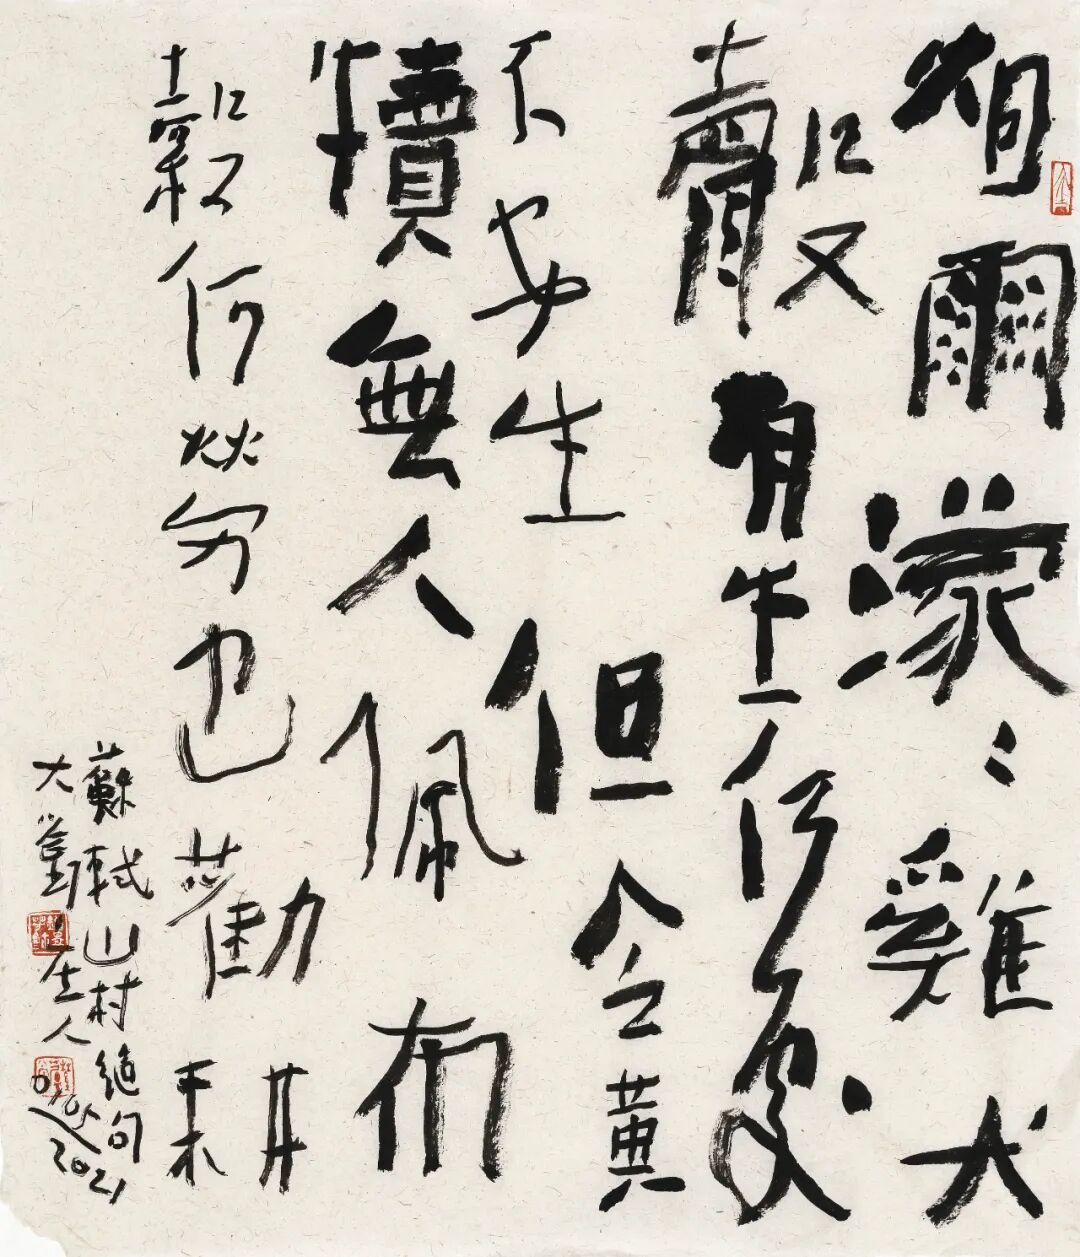 烟雨濛〻雞犬
聲有生何處
不安生但令黄
犢無人佩布
穀何勞也勸耕
蘇軾山村絶句 2021
大 主人